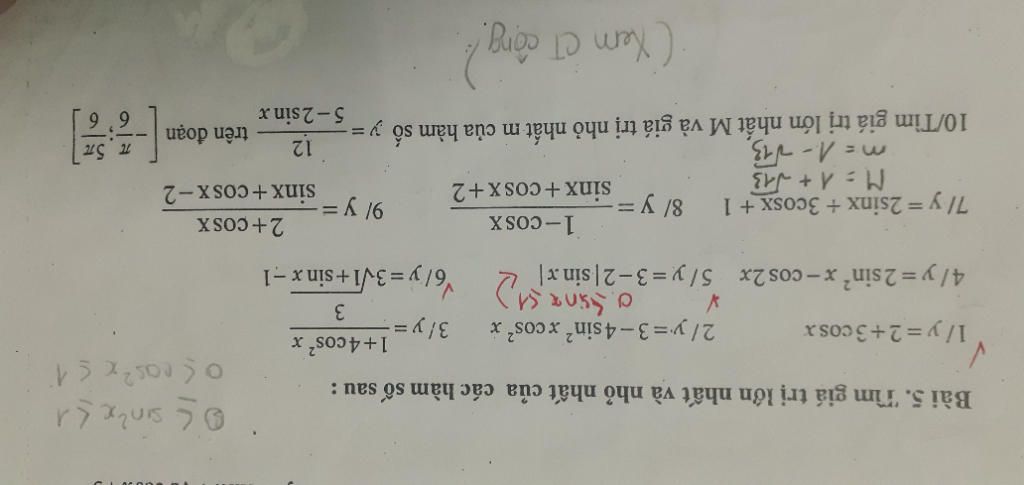 Bài 5. Tìm giá trị lớn nhất và nhỏ nhất của các hàm số sau :
0 ≤ sin²x ≤ 1
0 ≤ cos²x ≤ 1
1/ y = 2+3cosx 2/ y = 3−4sin²x cos²x 3/ y = (1+4cos²x)/3
0 ≤ sinx ≤ 1
4/ y = 2sin²x − cos2x 5/ y = 3−2|sin x| 6/ y = 3√(1+sin x) −1
7/ y = 2sinx + 3cosx + 1 8/ y = (1−cosx)/(sinx+cosx+2) 9/ y = (2+cosx)/(sinx+cosx−2)
M = 1 + √13
m = 1 − √13
10/Tìm giá trị lớn nhất M và giá trị nhỏ nhất m của hàm số y = 12/(5−2sin x) trên đoạn [−π/6; 5π/6]
(Xem CT cộng)